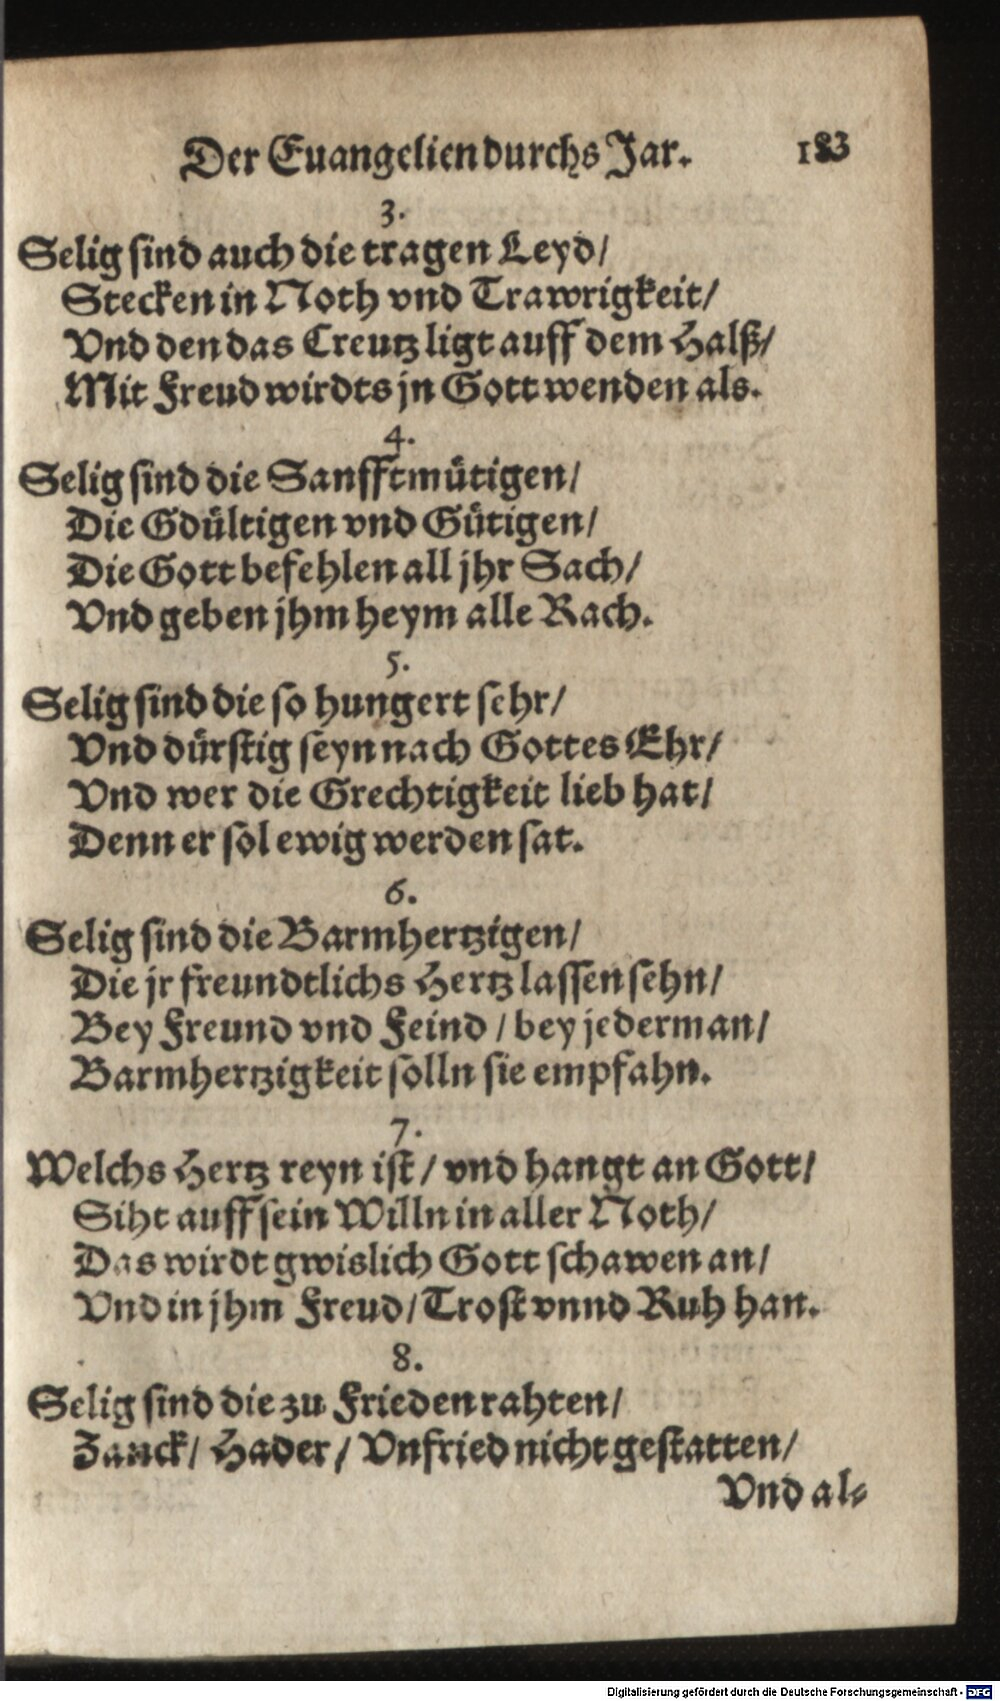 Der Euangelien durchs Jar. 183
3.
Selig sind auch die tragen Leyd/
Stecken in Noth vnd Trawrigkeit/
Vnd den das Creutz ligt auff dem Halß/
Mit Freud wirdts jn Gott wenden als.
4.
Selig sind die Sanfftmütigen/
Die Gdültigen vnd Gütigen/
Die Gott befehlen all jhr Sach/
Vnd geben jhm heym alle Rach.
5.
Selig sind die so hungert sehr/
Vnd dürstig seyn nach Gottes Ehr/
Vnd wer die Grechtigkeit lieb hat/
Denn er sol ewig werden sat.
6.
Selig sind die Barmhertzigen/
Die jr freundtlichs Hertz lassen sehn/
Bey Freund vnd Feind / bey jederman/
Barmhertzigkeit solln sie empfahn.
7.
Welchs Hertz reyn ist / vnd hangt an Gott/
Siht auff sein Willn in aller Noth/
Das wirdt gwislich Gott schawen an/
Vnd in jhm Freud/ Trost vnnd Ruh han.
8.
Selig sind die zu Frieden rahten/
Zanck/ Hader/ Vnfried nicht gestatten/
Vnd al⸗
Digitalisierung gefördert durch die Deutsche Forschungsgemeinschaft - DFG